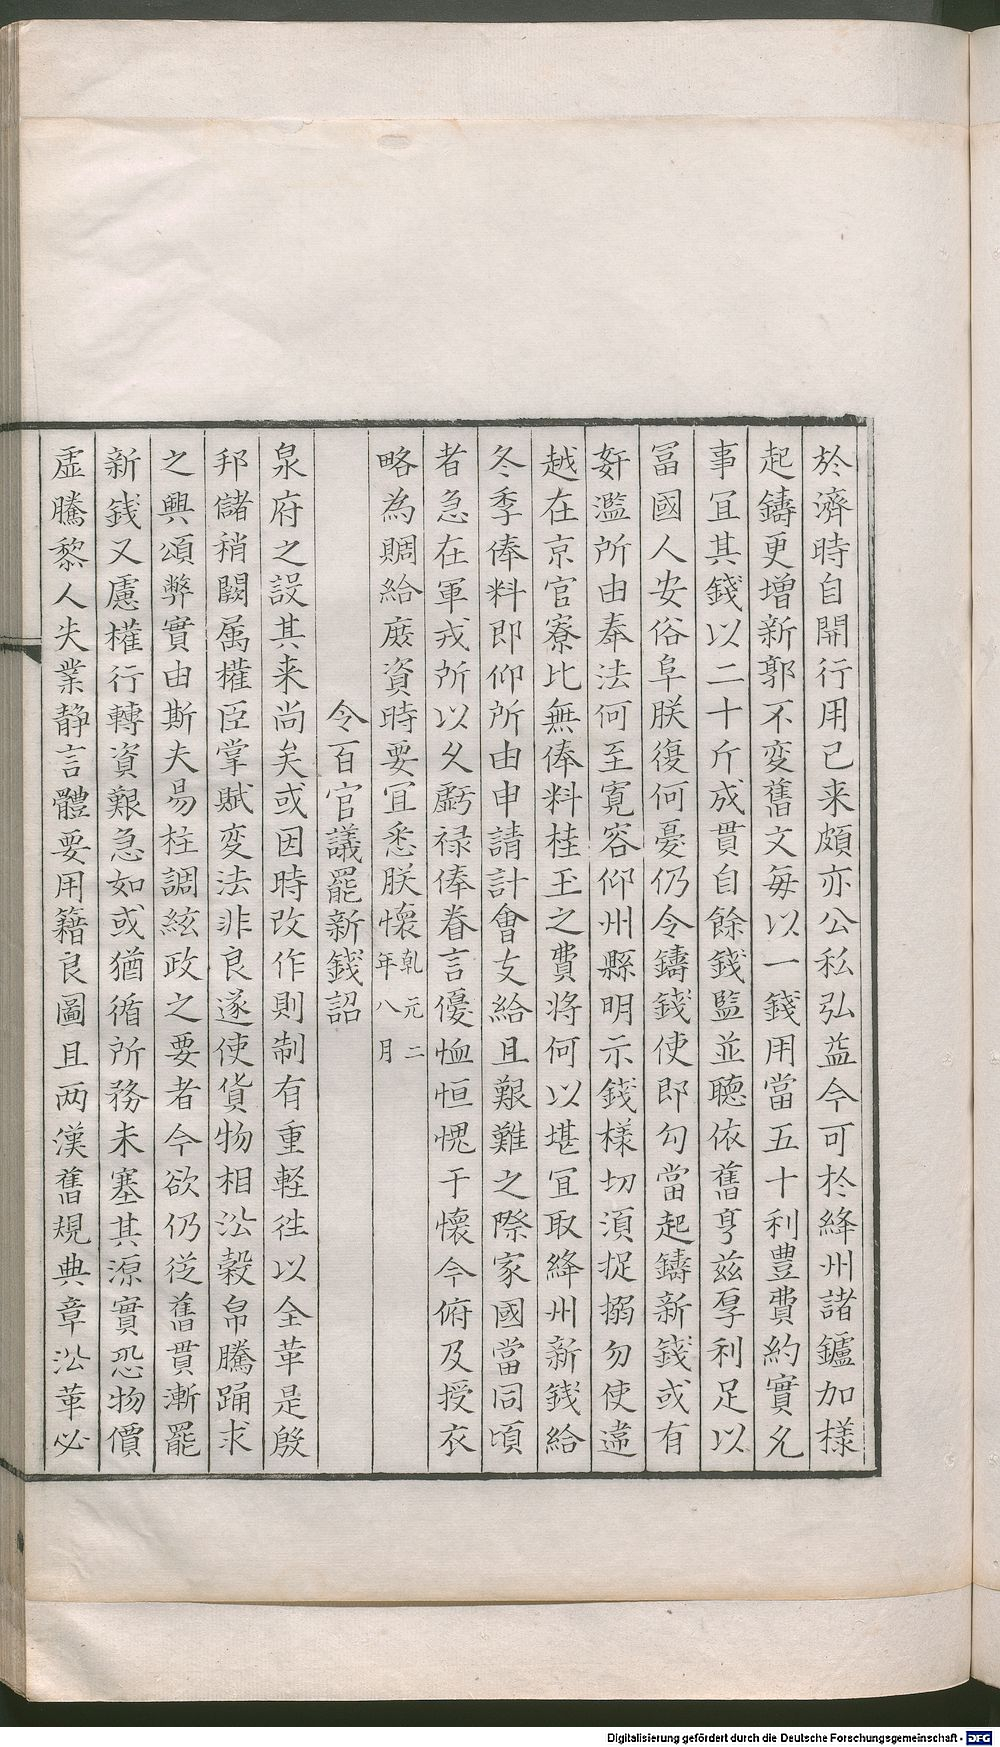 於濟時自開行用已来頗亦公私弘益今可於絳州諸鑪加樣
起鑄更增新郭不変舊文每以一錢用當五十利豊費約實允
事冝其錢以二十斤成貫自餘錢監並聴依舊亨兹厚利足以
冨國人安俗阜朕復何憂仍令鑄錢使即勾當起鑄新錢或有
姧濫所由奉法何至寛容仰州縣明示錢樣切湏捉搦勿使違
越在京官寮比無俸料桂玉之費將何以堪冝取絳州新錢給
冬季俸料即仰所由申請計會支給且艱難之際家國當同頃
者急在軍戎所以久虧禄俸眷言優恤恒愧于懷今俯及授衣
略為賙給庻資時要冝悉朕懷乹元二年八月
令百官議罷新錢詔
泉府之設其来尚矣或因時改作則制有重軽徃以全革是殷
邦儲稍闕属權臣掌賦变法非良遂使貨物相㳂穀帛騰踊求
之輿頌弊實由斯夫易柱調絃政之要者今欲仍従舊貫漸罷
新銭又慮權行轉資艱急如或猶循所務未塞其源實恐物價
虚騰黎人失業静言體要用籍良圖且两漢舊規典章㳂革必
Digitalisierung gefördert durch die Deutsche Forschungsgemeinschaft - DFG